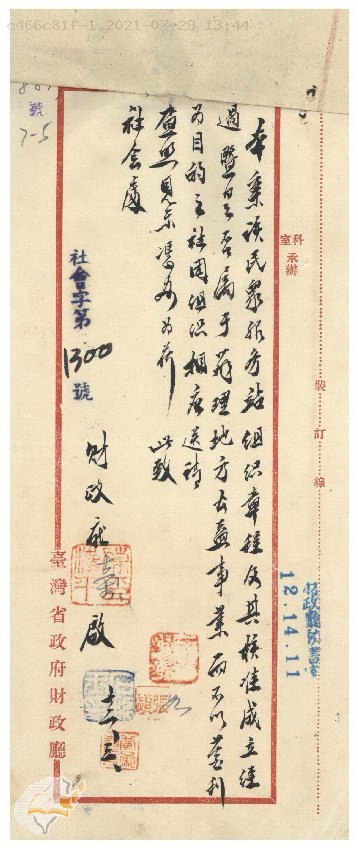 c466c81f-1 2021-07-29 13:44
號
7-5
科室承辦
裝訂線
本案該民眾服務站組織章程及其核准成立經
過暨是否屬于辦理地方公益事業而不以營利
為目的之社團組織相應送請
查照見示憑辦為荷 此致
社會處
社會字第1300號
財政廳 啟
十二 三
臺灣省政府財政廳
12.14.11